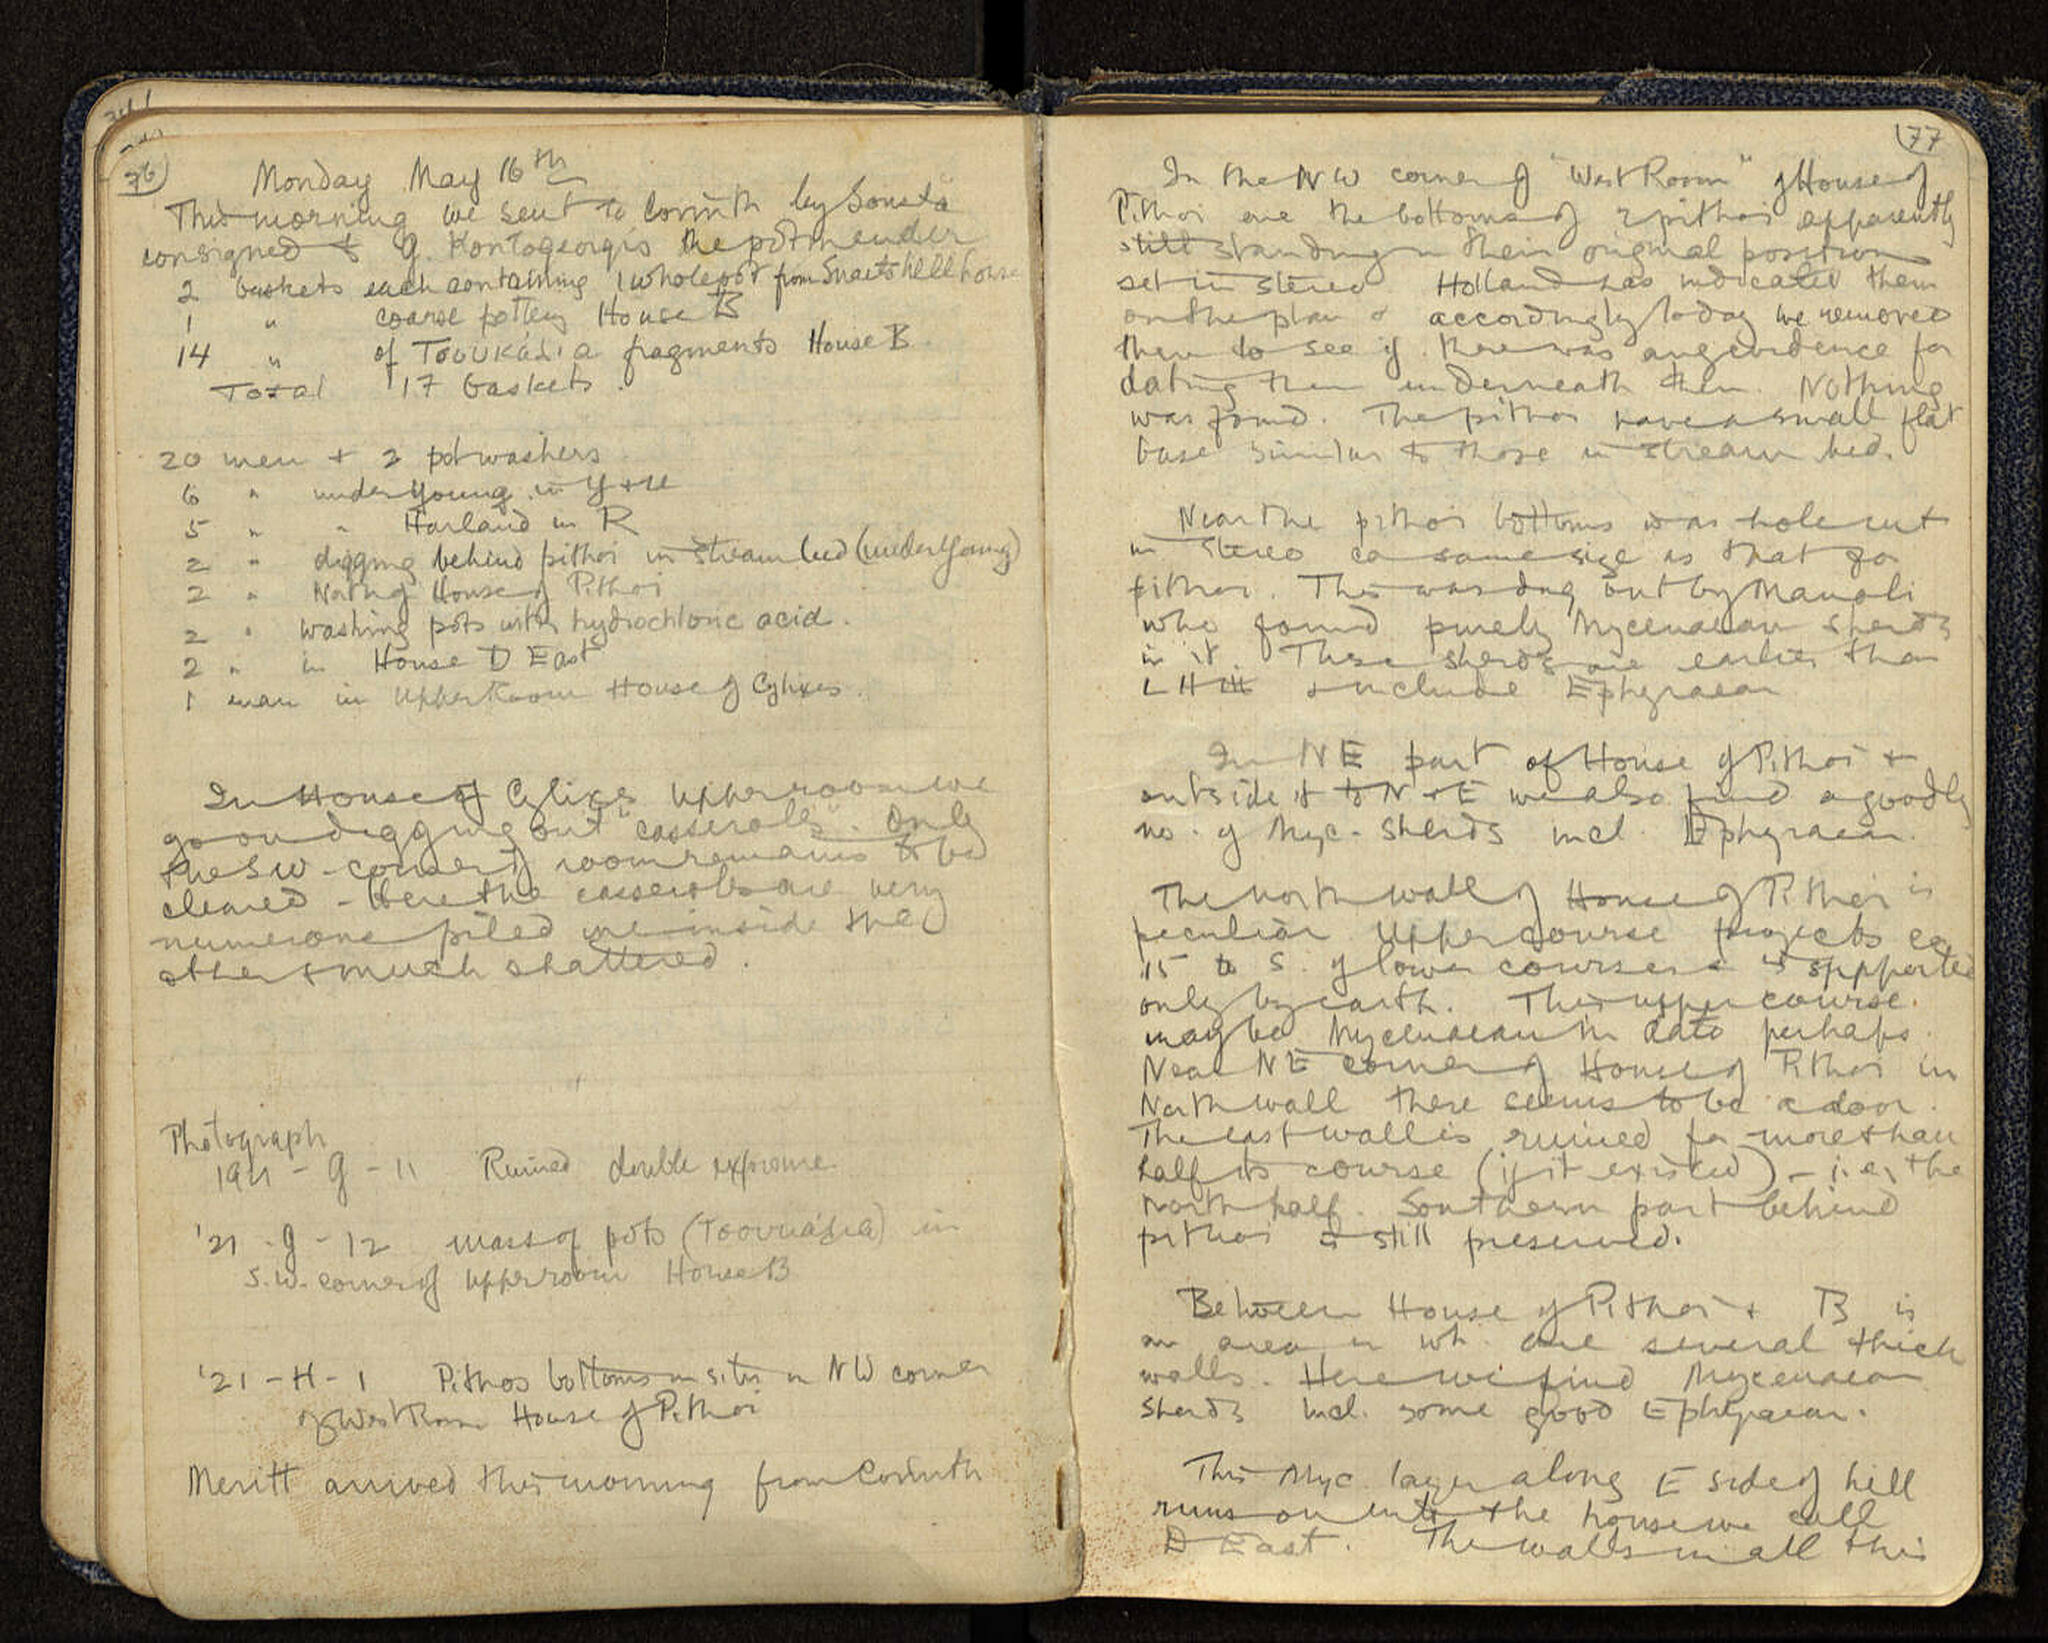 76
Monday May 16th
This morning we sent to Corinth by Sousta
consigned to G. Kontogeorgis the potmender
2 baskets each containing 1 whole pot from Snailshell house
1 " coarse pottery House B
14 " of Τσουκάλια fragments House B
Total 17 baskets.
20 men + 2 potwashers
6 " under Young in Y + U
5 " " Harland in R
2 " digging behind pithoi in stream bed (under Young)
2 " North of House of Pithoi
2 " washing pots with hydrochloric acid.
2 " in House D East
1 man in Upper Room House of Cylixes.
In House of Cylixes Upper room we
go on digging out "casserols". Only
the SW-corner of room remains to be
cleared - Here the casserols are very
numerous piled one inside the
other & much shattered.
Photograph
1921 - G - 11 Ruined double exposure
'21 - G - 12 mass of pots (Τσουκάλια) in
S.W. corner of upper room House B
'21 - H - 1 Pithos bottoms in situ in NW corner
of West Room House of Pithoi
Meritt arrived this morning from Corinth
77
In the NW corner of "West Room" of House of
Pithoi are the bottoms of 2 pithoi apparently
still standing in their original position
set in stereo. Holland has indicated them
on the plan & accordingly today we removed
them to see if there was any evidence for
dating them underneath them. Nothing
was found. The pithoi have a small flat
base similar to those in stream bed.
Near the pithoi bottoms was hole cut
in stereo ca same size as that for
pithoi. This was dug out by Manoli
who found purely Mycenaean sherds
in it. These sherds are earlier than
LH III & include Ephyraean
In NE part of House of Pithoi +
outside it to N + E we also find a goodly
no. of Myc. sherds incl. Ephyraean.
The north wall of House of Pithoi is
peculiar Upper course projects ca
.15 to S. of lower courses & is supported
only by earth. This upper course
may be Mycenaean in date perhaps.
Near NE corner of House of Pithoi in
North wall there seems to be a door.
The east wall is ruined for more than
half its course (if it existed) - i.e., the
north half. Southern part behind
pithoi is still preserved.
Between House of Pithoi + B is
an area in wh. are several thick
walls. Here we find Mycenaean
sherds incl. some good Ephyraean.
This Myc. layer along E side of hill
runs on into the house we call
D East. The walls in all this